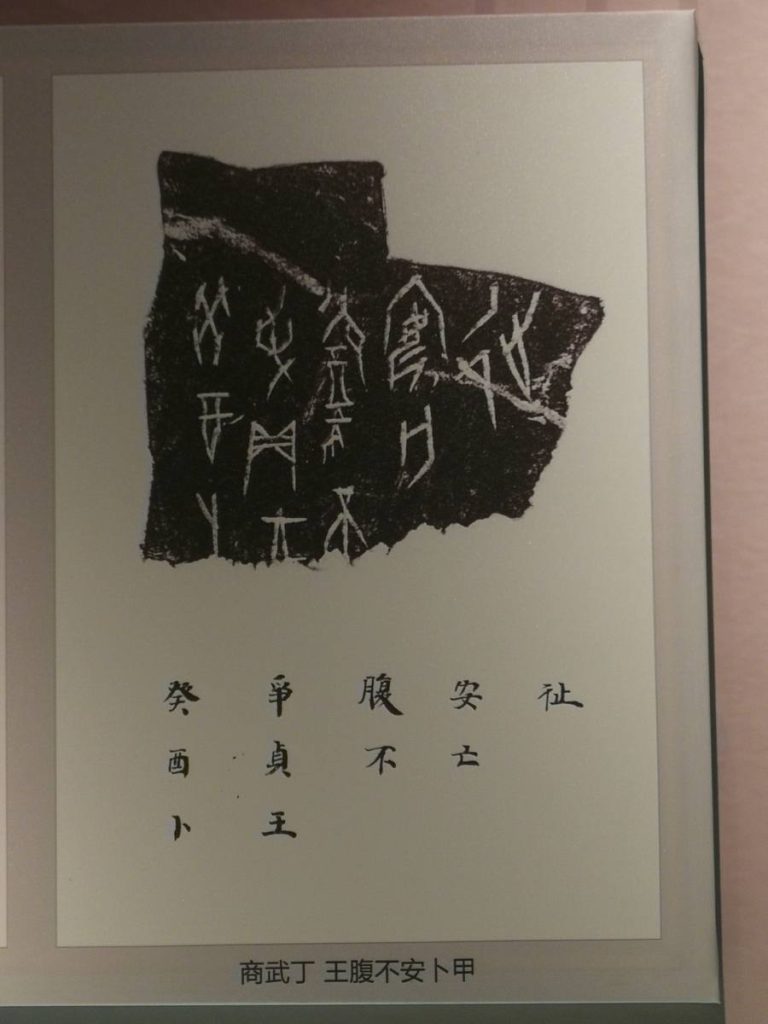 癸酉卜
爭貞王
腹不
安亡
𢓊
商武丁 王腹不安卜甲